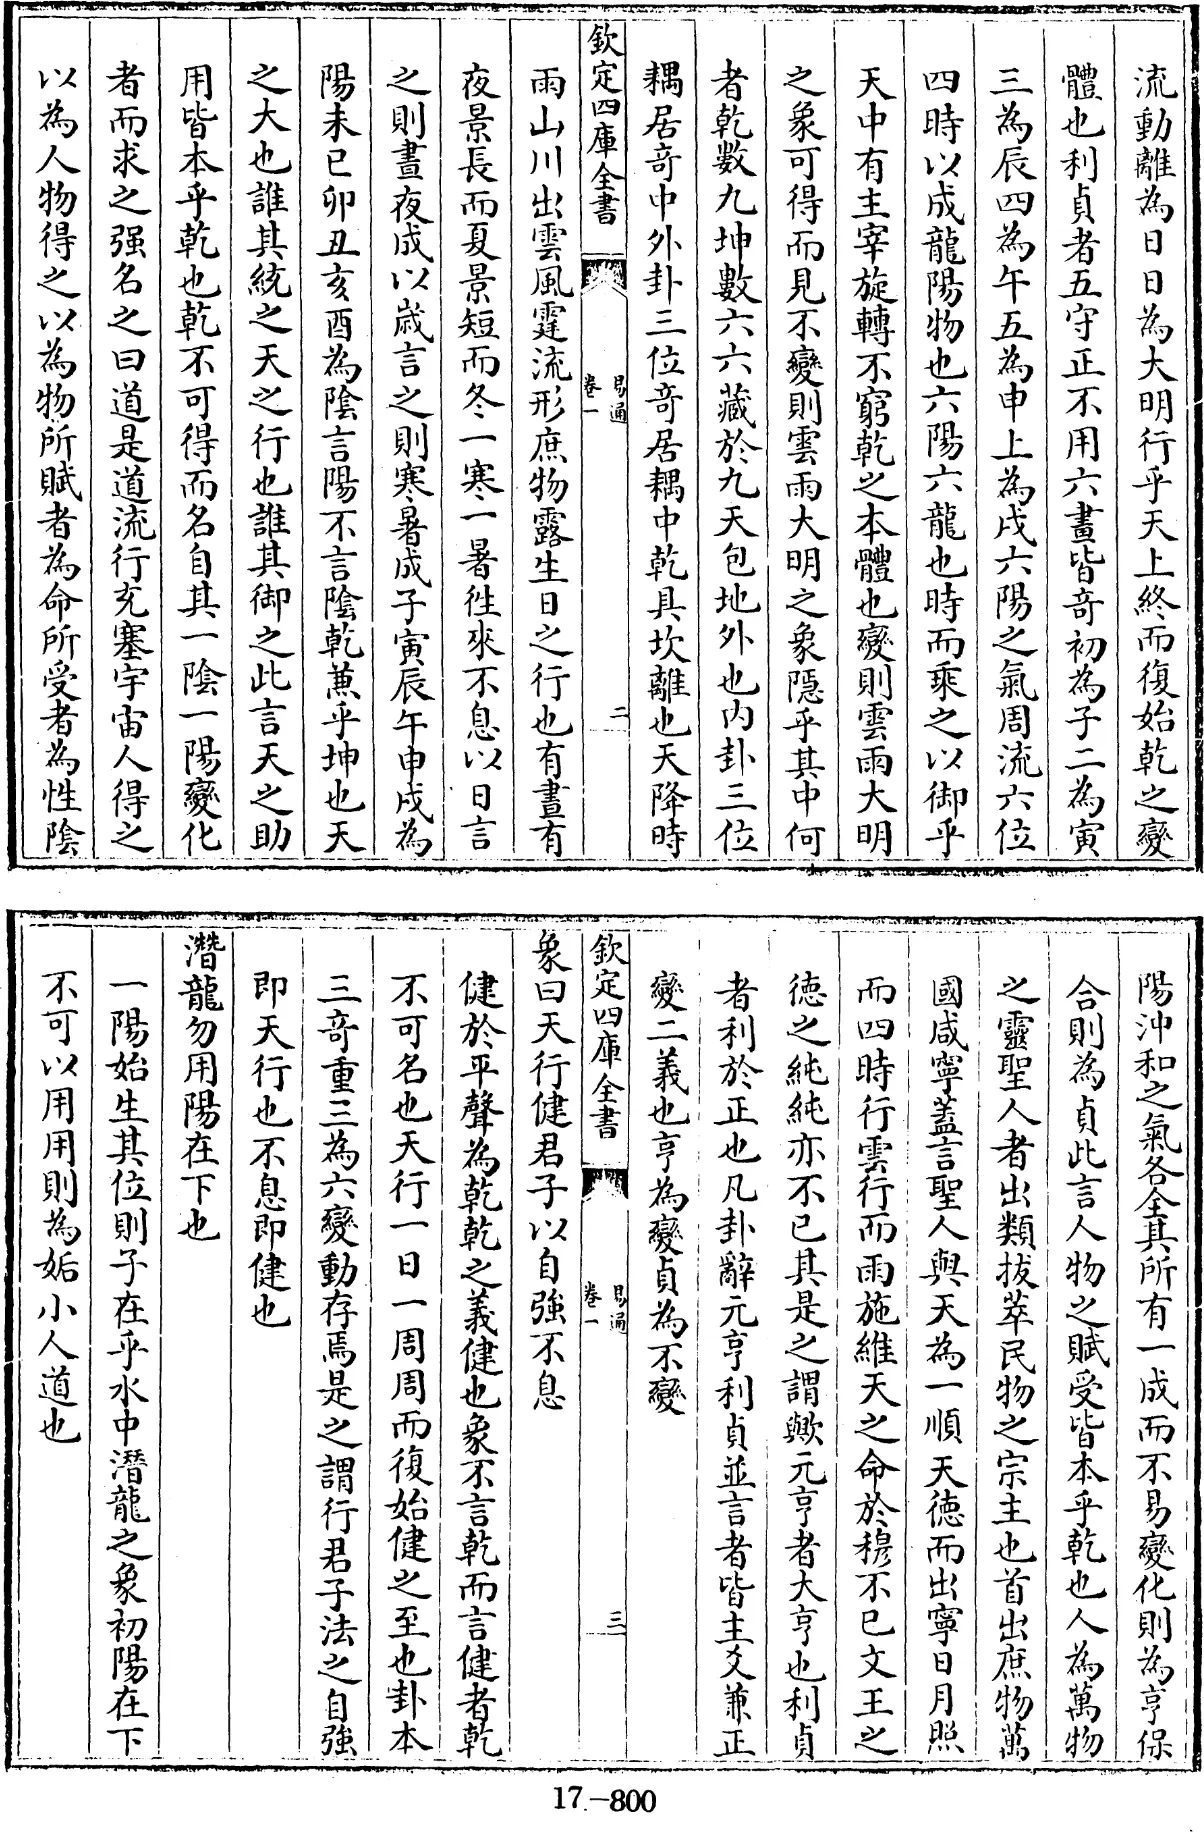 流動離為日日為大明行乎天上終而復始乾之變
體也利貞者五守正不用六畫皆奇初為子二為寅
三為辰四為午五為申上為戌六陽之氣周流六位
四時以成龍陽物也六陽六龍也時而乘之以御乎
天中有主宰旋轉不窮乾之本體也變則雲雨大明
之象可得而見不變則雲雨大明之象隱乎其中何
者乾數九坤數六六藏於九天包地外也内卦三位
耦居竒中外卦三位竒居耦中乾具坎離也天降時
欽定四庫全書
易通
卷一
二
雨山川出雲風霆流形庶物露生日之行也有晝有
夜景長而夏景短而冬一寒一暑徃來不息以日言
之則晝夜成以嵗言之則寒暑成子寅辰午申戌為
陽未巳卯丑亥酉為陰言陽不言陰乾兼乎坤也天
之大也誰其統之天之行也誰其御之此言天之助
用皆本乎乾也乾不可得而名自其一陰一陽變化
者而求之强名之曰道是道流行充塞宇宙人得之
以為人物得之以為物所賦者為命所受者為性陰
陽沖和之氣各全其所有一成而不易變化則為亨保
合則為貞此言人物之賦受皆本乎乾也人為萬物
之靈聖人者出類拔萃民物之宗主也首出庶物萬
國咸寧蓋言聖人與天為一順天德而出寧日月照
而四時行雲行而雨施維天之命於穆不已文王之
德之純純亦不已其是之謂歟元亨者大亨也利貞
者利於正也凡卦辭元亨利貞並言者皆主爻兼正
變二義也亨為變貞為不變
欽定四庫全書
易通
卷一
三
象曰天行健君子以自強不息
健於平聲為乾乾之義健也象不言乾而言健者乾
不可名也天行一日一周周而復始健之至也卦本
三竒重三為六變動存焉是之謂行君子法之自強
即天行也不息即健也
潛龍勿用陽在下也
一陽始生其位則子在乎水中潛龍之象初陽在下
不可以用用則為姤小人道也
17.-800